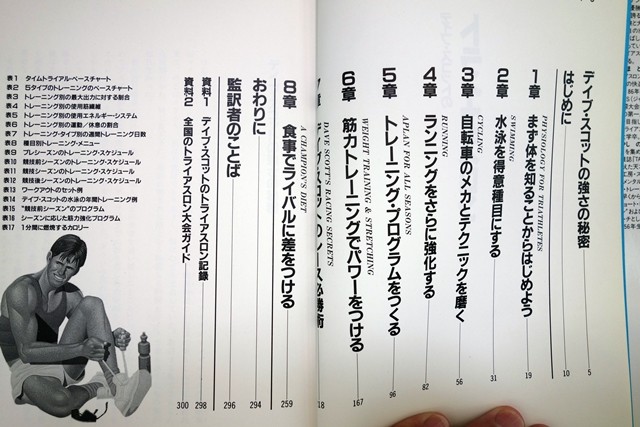 デイブ・スコットの強さの秘密 5
はじめに 10
PHYSIOLOGY FOR TRIATHLETES
1章 まず体を知ることからはじめよう 19
SWIMMING
2章 水泳を得意種目にする 31
CYCLING
3章 自転車のメカとテクニックを磨く 56
RUNNING
4章 ランニングをさらに強化する 82
A PLAN FOR ALL SEASONS
5章 トレーニング・プログラムをつくる 96
WEIGHT TRAINING & STRETCHING
6章 筋力トレーニングでパワーをつける 167
DAVE SCOTT'S RACING SECRETS
デイブ・スコットのレース必勝術
A CHAMPION'S DIET
8章 食事でライバルに差をつける 259
おわりに 294
監訳者のことば 296
資料1 デイブ・スコットのトライアスロン記録 298
資料2 全国のトライアスロン大会ガイド 300
表1 タイムトライアル・ペースチャート
表2 5タイプのトレーニングのペースチャート
表3 トレーニング別の最大出力に対する割合
表4 トレーニング別の使用筋繊維
表5 トレーニング別の使用エネルギー・システム
表6 トレーニング別の運動/休息の割合
表7 トレーニング・タイプ別の週間トレーニング日数
表8 種目別トレーニング・メニュー
表9 プレシーズンのトレーニング・スケジュール
表10 競技前シーズンのトレーニング・スケジュール
表11 競技シーズンのトレーニング・スケジュール
表12 競技後シーズンのトレーニング・スケジュール
表13 ワークアウトのセット例
表14 デイブ・スコットの水泳の年間トレーニング例
表15 "競技前シーズン"のプログラム
表16 シーズンに応じた筋力強化プログラム
表17 1分間に燃焼するカロリー